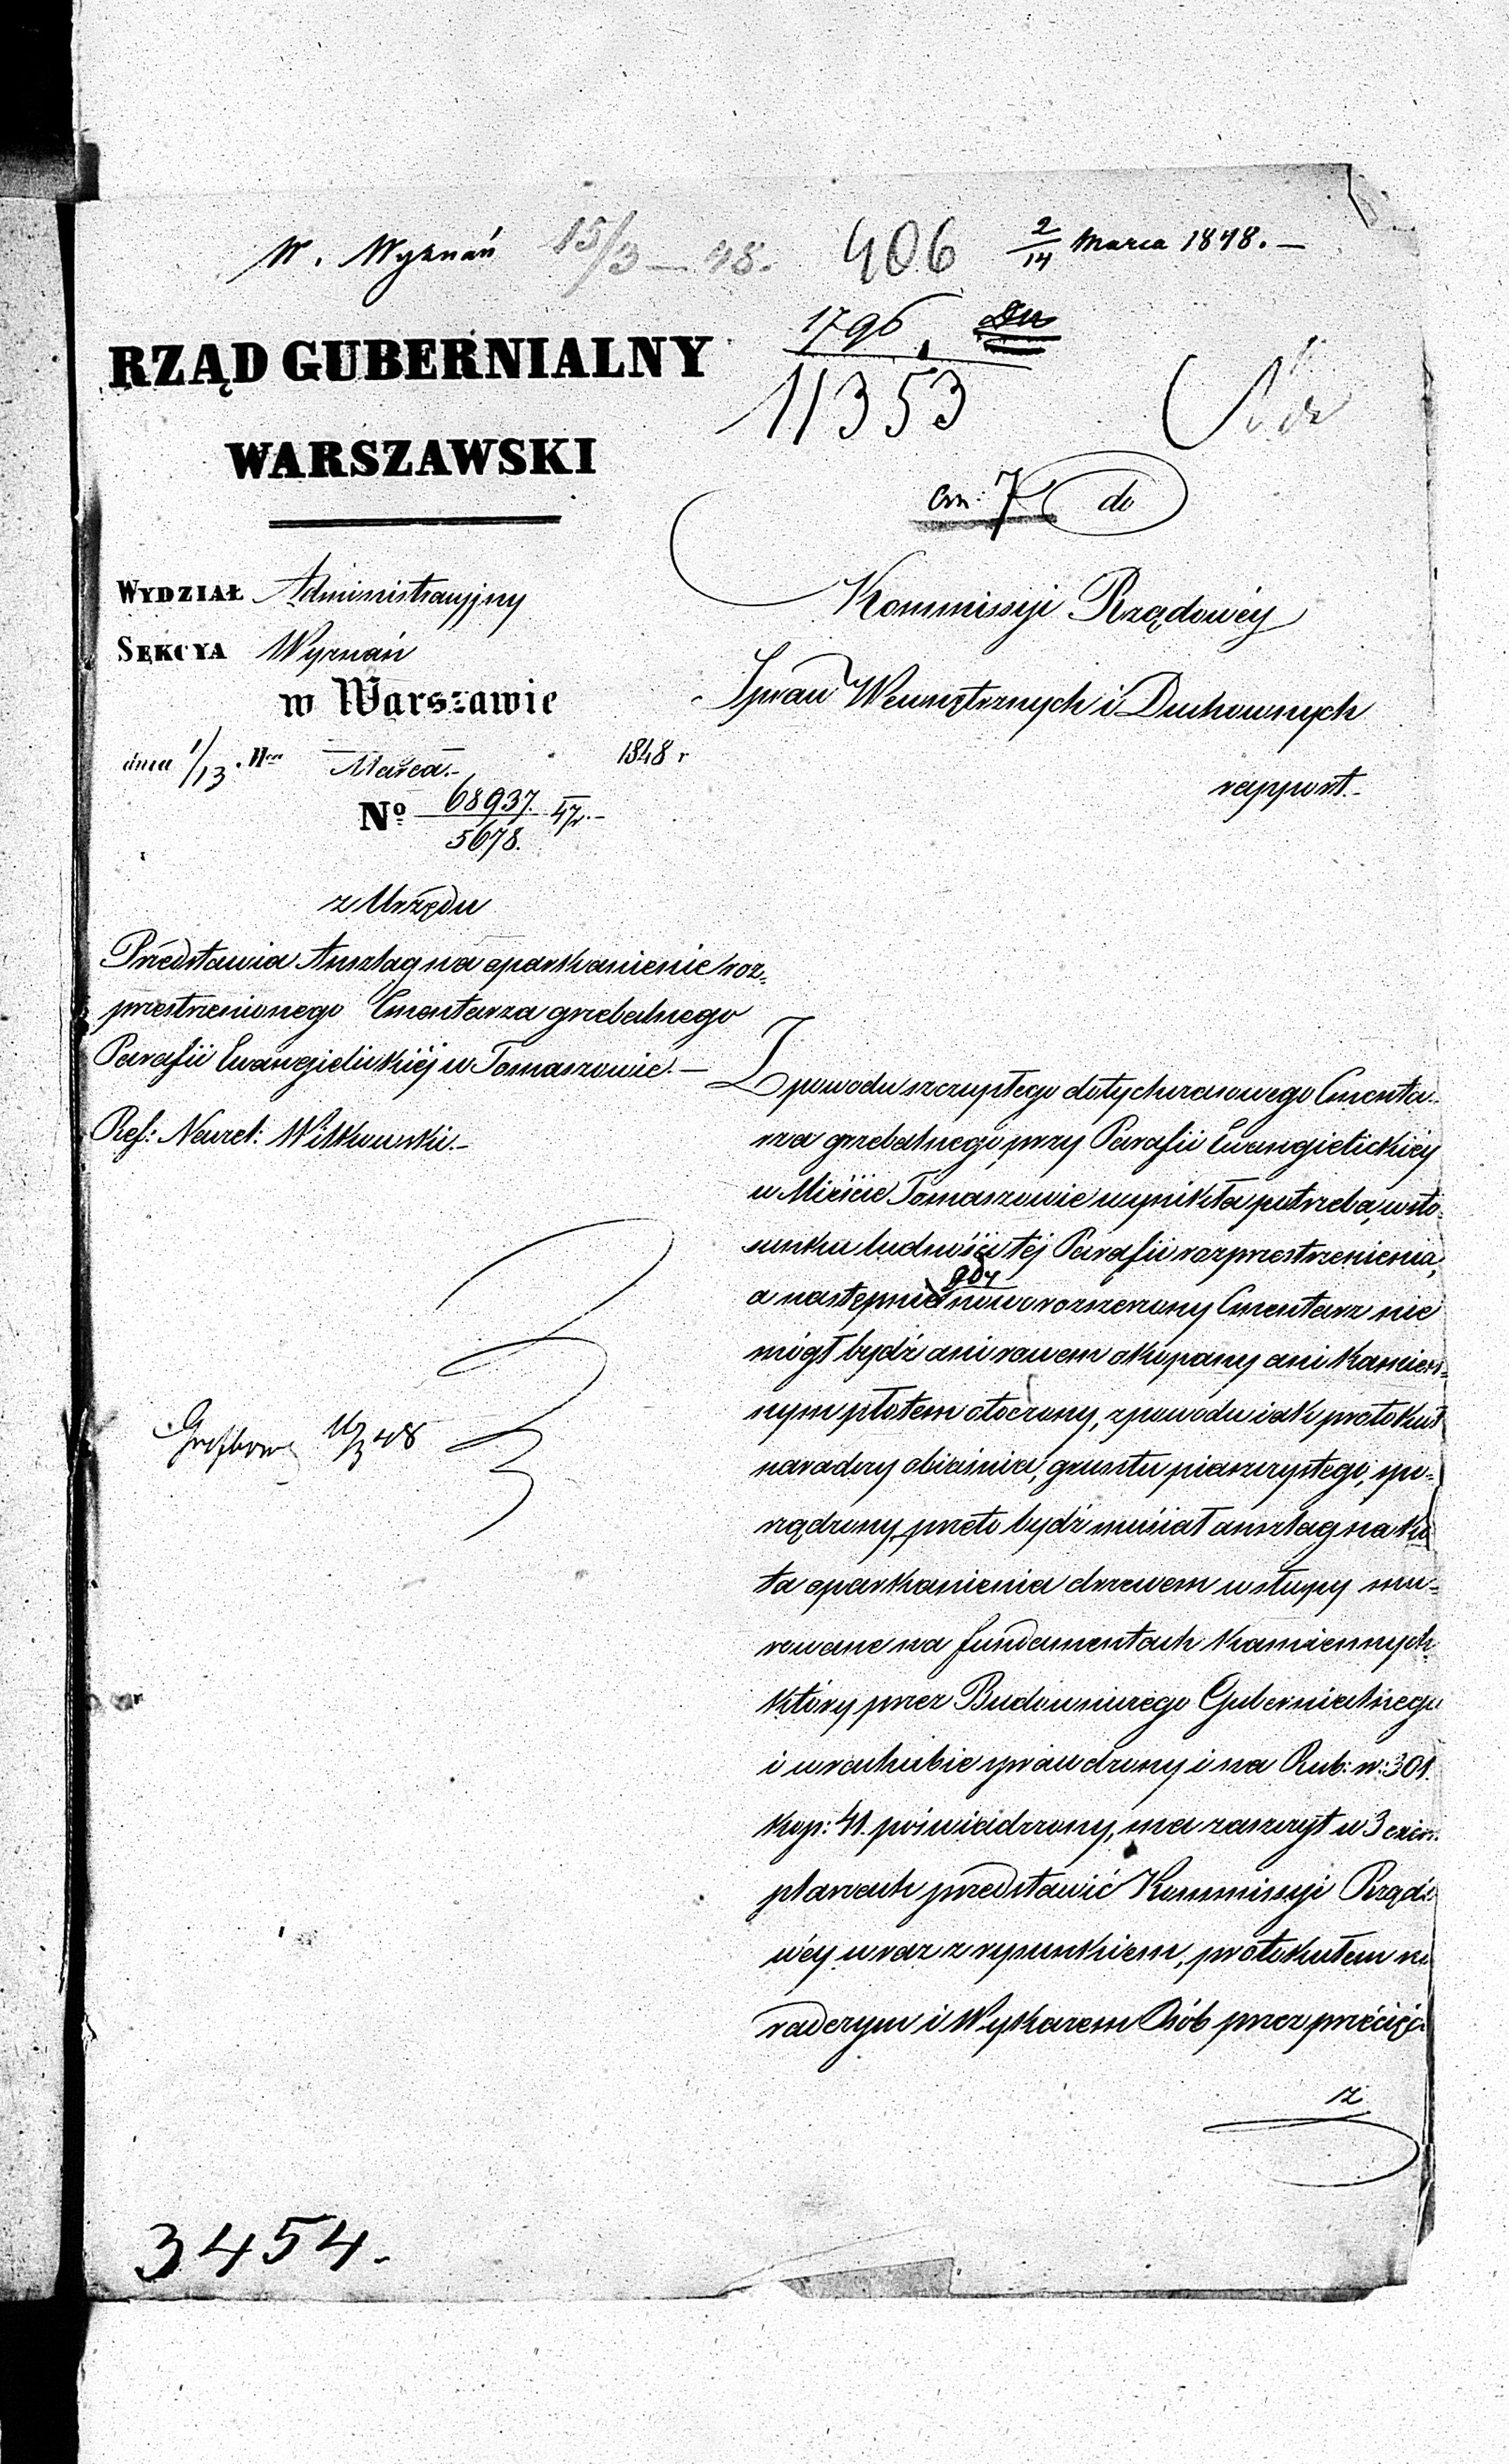 W. Wyznań 15/3 – 48. 406 2/14 Marca 1848. –
1796
11353
RZĄD GUBERNIALNY
WARSZAWSKI
7 do
WYDZIAŁ Administracyjny
SEKCYA Wyznań
w Warszawie
dnia 1/13. Marca 1848 r
Nº 68937/5678. 47r. –
z Urzędu
Przedstawia Anszlag na oparkanienie roz=
przestrzenionego Cmentarza grzebalnego
Parafii Ewangielickiéj w Tomaszowie. –
Ref: Witkowski. –
Kommissyi Rządowéy
Spraw Wewnętrznych i Duchownych
rapport. –
Z powodu szczupłego dotychczasowego Cmenta-
rza grzebalnego, przy Parafii Ewangielickiéj
w Mieście Tomaszowie wynikła potrzeba, w sto-
sunku ludności téj Parafii rozprzestrzenienia,
a następnie gdy nowo rozszerzony Cmentarz nie
mógł bydź ani rowem okopany ani kamien=
nym płotem otoczony, z powodu iak protokuł
naradczy obiaśnia, gruntu piasczystego, spo=
rządzony przeto bydź musiał anszlag na ko
ta oparkanienia drzewem w słupy mu=
rowane na fundamentach kamiennych
który przez Budowniczego Gubernialnego
i w rachubie sprawdzony i na Rub: sr: 301.
kop: 41. poświadczony, ma zaszczyt w 3 exem
plarzach przedstawić Kommissyi Rządo
wéy wraz z rysunkiem, protokułem na
radczym i Wykazem Osób przez
z
11/3 48
3454.